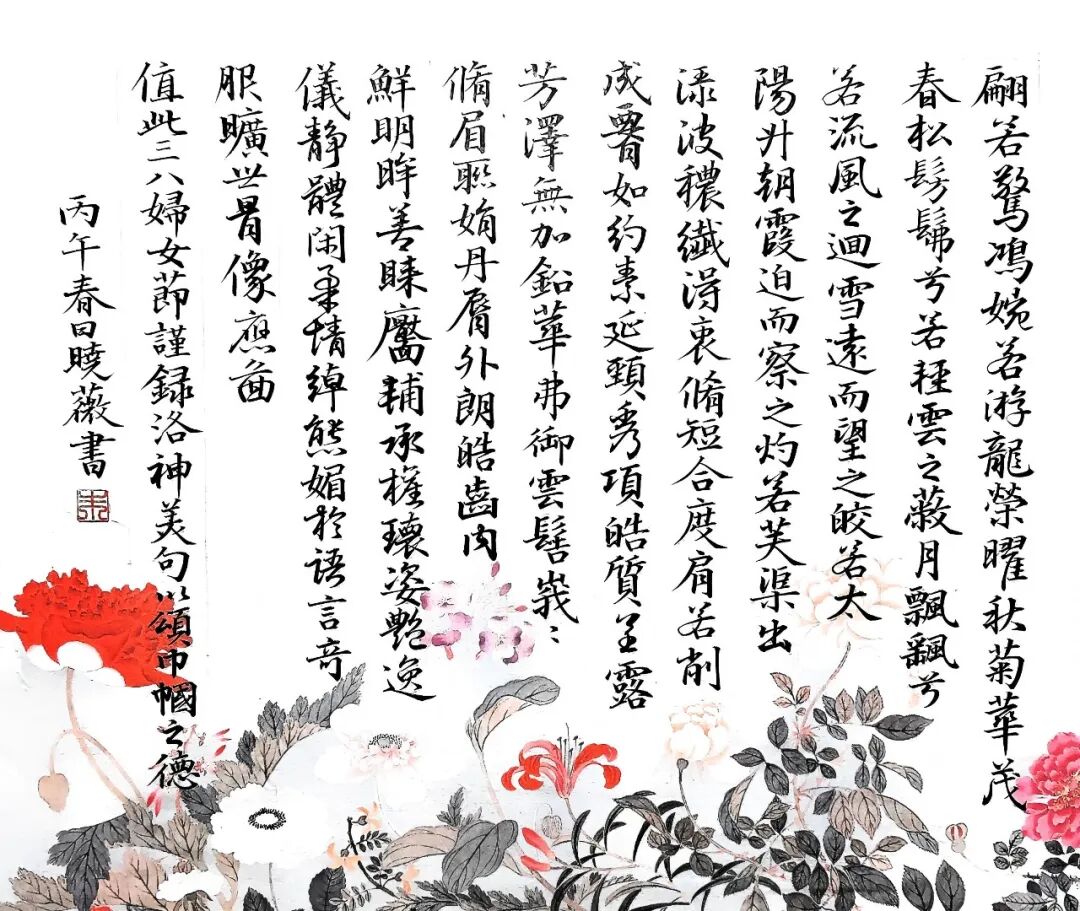 翩若驚鴻婉若游龍榮曜秋菊華茂
春松髣髴兮若輕雲之蔽月飄飖兮
若流風之迴雪遠而望之皎若太
陽升朝霞迫而察之灼若芙渠出
渌波穠纖得衷脩短合度肩若削
成腰如約素延頸秀項皓質呈露
芳澤無加鉛華弗御雲髻峩〻
脩眉聯娟丹脣外朗皓齒内
鮮明眸善睞靨輔承權瓌姿艷逸
儀靜體閑柔情綽態媚於語言奇
服曠世骨像應圖
值此三八婦女節謹録洛神美句以頌巾幗之德
丙午春田曉薇書